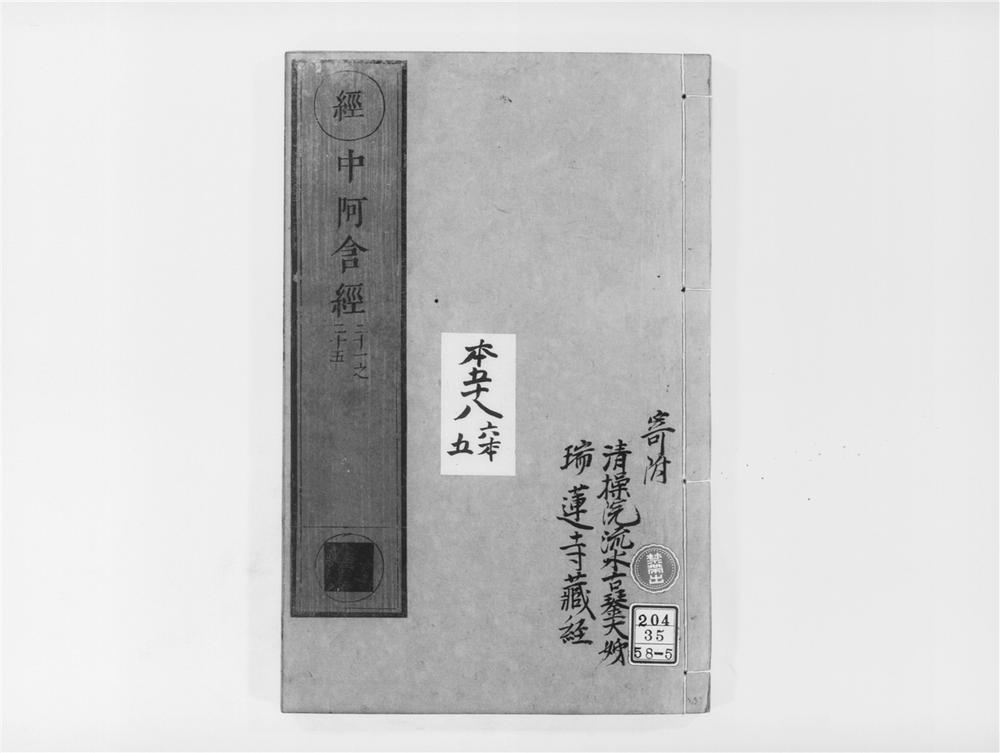 經
中阿含經
二十一之
二十五
本五十八
六本
五
寄附
清操院流水古琴大姉
瑞蓮寺藏経
禁帶出
204
35
58-5